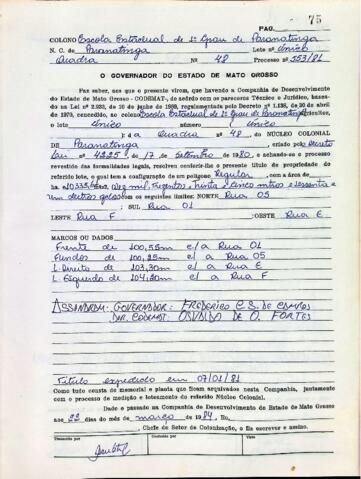 PAG. 75
COLONO Escola Estadual de 1º Grau de Paranatinga
N. C. de Paranatinga Lote nº único
Quadra Nº 48 Processo nº 553/81
O GOVERNADOR DO ESTADO DE MATO GROSSO
Faz saber, aos que o presente virem, que havendo a Companhia de Desenvolvimento
do Estado de Mato Grosso - CODEMAT-, de acôrdo com os pareceres Técnico e Jurídico, basea-
do na Lei nº 2.933, de 16 de junho de 1969, regulamentada pelo Decreto nº 1.138, de 20 de abril
de 1970, concedido, ao colono Escola Estadual de 1º Grau de Paranatinga
o lote único número único
da Quadra nº 48, do NÚCLEO COLONIAL
DE Paranatinga criado pelo Decreto
Lei nº 4225, de 17 de Setembro de 1980, e achando-se o processo
revestido das formalidades legais, resolveu conferir-lhe o presente título de propriedade do
referido lote, o qual tem a configuração de um polígono Regular, com a área de
ha 10335,61 (Dez mil, trezentos e trinta e cinco mtros e sessenta e
um com os seguintes limites: NORTE Rua 05
SUL Rua 01
LESTE Rua F OESTE Rua E
MARCOS OU DADOS
Frente de 100,55m c/a Rua 01
Fundos de 100,25m c/a Rua 05
L. Direito de 103,30m c/a Rua E
L. Esquerdo de 104,30m c/a Rua F
ASSINARAM: GOVERNADOR: FREDERICO C. S. DE CAMPOS
DIR. CODEMAT: OSVALDO DE O. FORTES
Título expedido em 07/01/81
Como tudo consta do memorial e planta que ficam arquivados nesta Companhia, juntamente
com o processo de medição e loteamento do referido Núcleo Colonial.
Dado e passado na Companhia de Desenvolvimento do Estado de Mato Grosso
aos 22 dias do mês de março de 1984. Eu,
, Chefe do Setor de Colonização, o fiz escrever e assino.
Conferido Visto